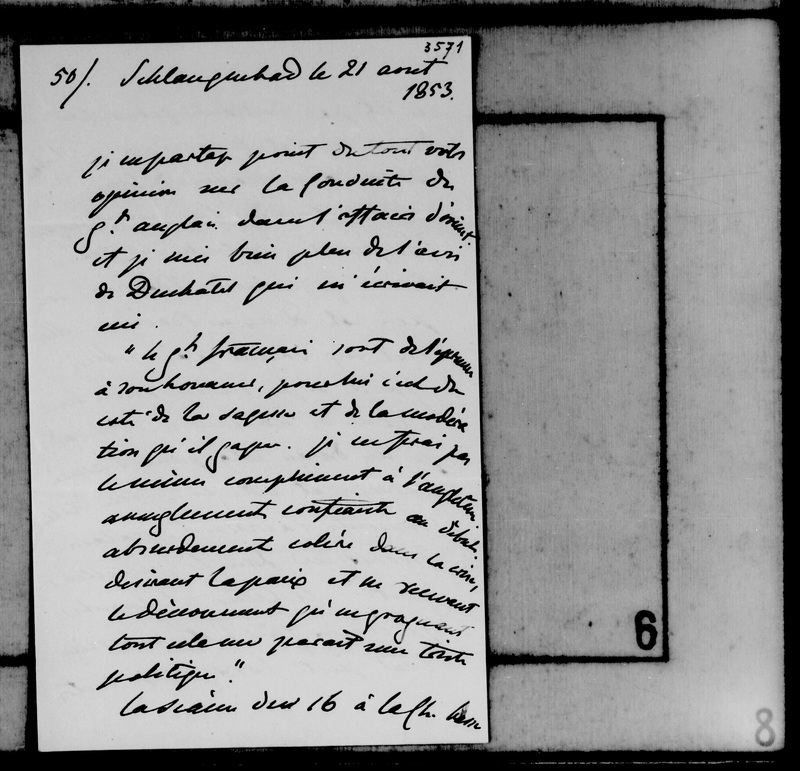 3571
50/. Schlangenbad le 21 aout
1853.
je ne partage point du tout votre
opinion sur la conduite du
gt anglais dans l'affaire d'orient.
et je suis bien plus de l'avis
de Duchatel qui m'écrivait
ceci.
"le gt français sort de l'épreuve
à son honneur, pour lui c'est du
coté de la sagesse et de la modéra
tion qu'il gagne. je ne ferai pas
le même compliment à l'angleterre
aveuglement confiante au début.
absurdement colère dans la crise,
desirant la paix et ne recevant
le dénouement qu'en grognant
tout cela me parait une triste
politique."
la séance du 16 à la Ch. basse
6
8